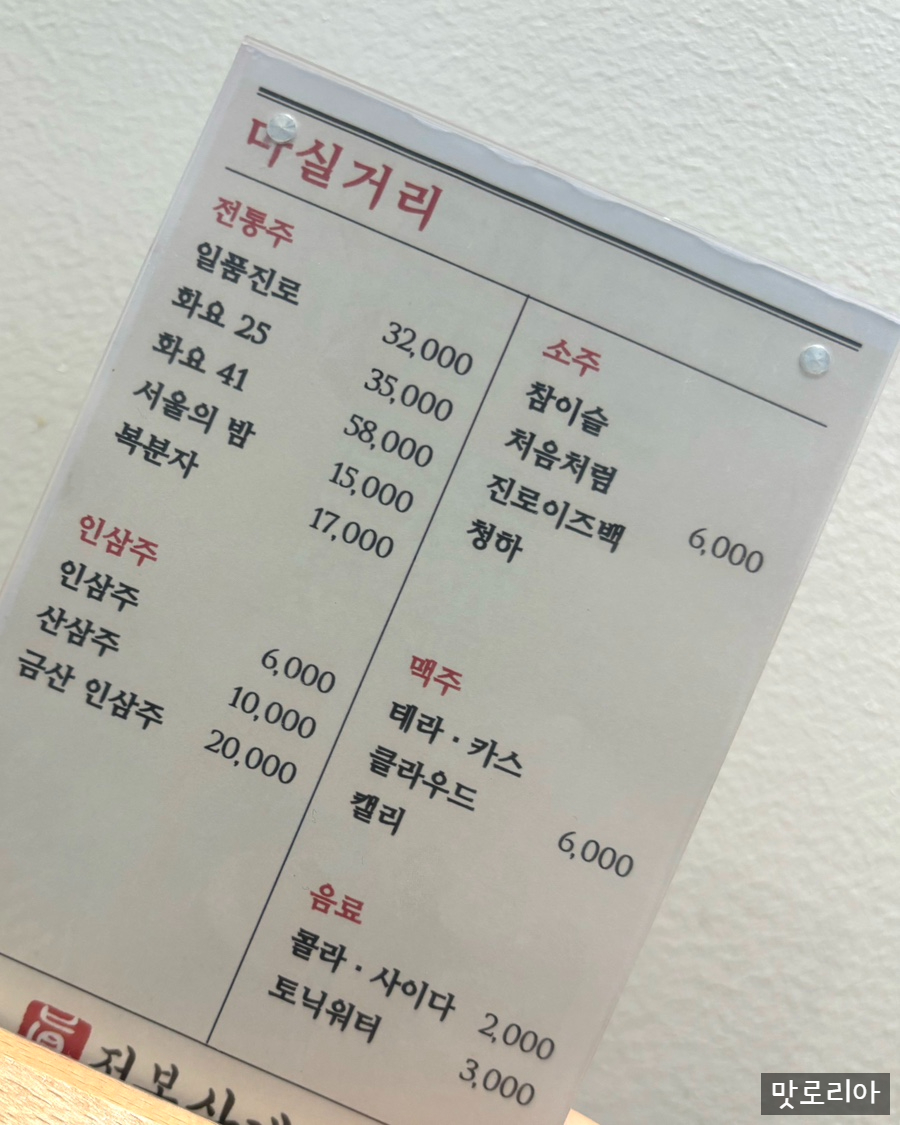 마실거리
전통주
일품진로 32,000
화요 25 35,000
화요 41 58,000
서울의 밤 15,000
복분자 17,000
인삼주
인삼주 6,000
산삼주 10,000
금산 인삼주 20,000
소주
참이슬
처음처럼
진로이즈백 6,000
청하
맥주
테라 · 카스
클라우드
캘리 6,000
음료
콜라 · 사이다 2,000
토닉워터 3,000
맛로리아